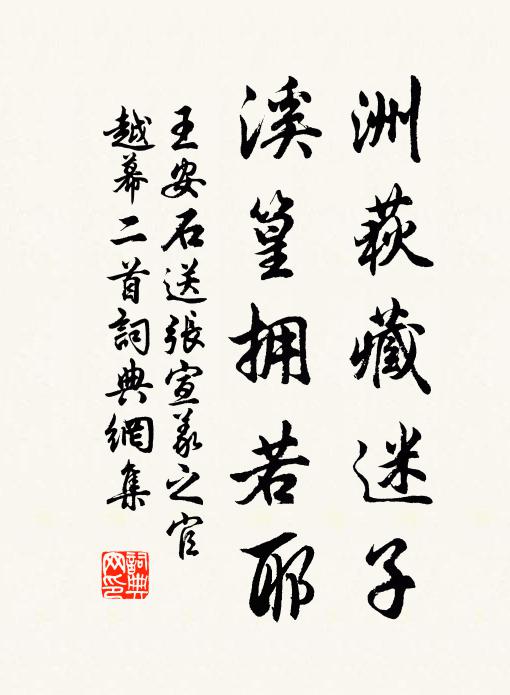 洲荻藏迷子
溪篁拥若耶
王安石送張宣義之官
越幕二首詞典網集
詞典網印